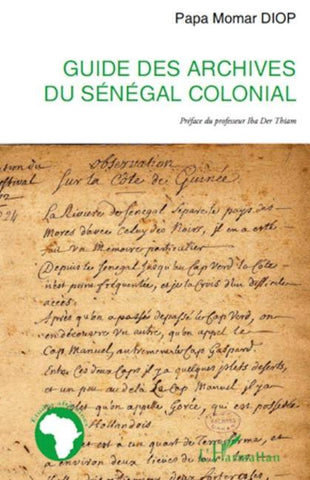 Papa Momar DIOP
GUIDE DES ARCHIVES
DU SÉNÉGAL COLONIAL
Préface du professeur Iba Der Thiam
observation
Sur la Côte de Guinée
La Riviere de Senegal Separe le pays des
Mores d'avec Celuy des Noirs, il en a esté
fait un Mémoire particulier
Depuis le Senegal Jusqu'au Cap Verd la Côte
n'est point frequentée, et je la Crois d'un difficille
accés.
Après qu'on a passé depassé le Cap Verd, on
en découvre un autre, qu'on appel le
Cap. Manuel, autrement le Cap Gaspard.
Entre Ces deux Caps il y a quelques Islets deserts,
et un peu au delà Le Cap. Manuel, il y a
Islet qu'on appelle Gorée, qui est possedé
Hollandois.
est a un quart de Terre ferme, et
environ deux lieux
L'Harmattan